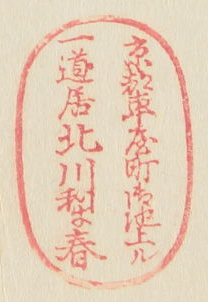 京都車屋町御池上ル
一道居北川梨春